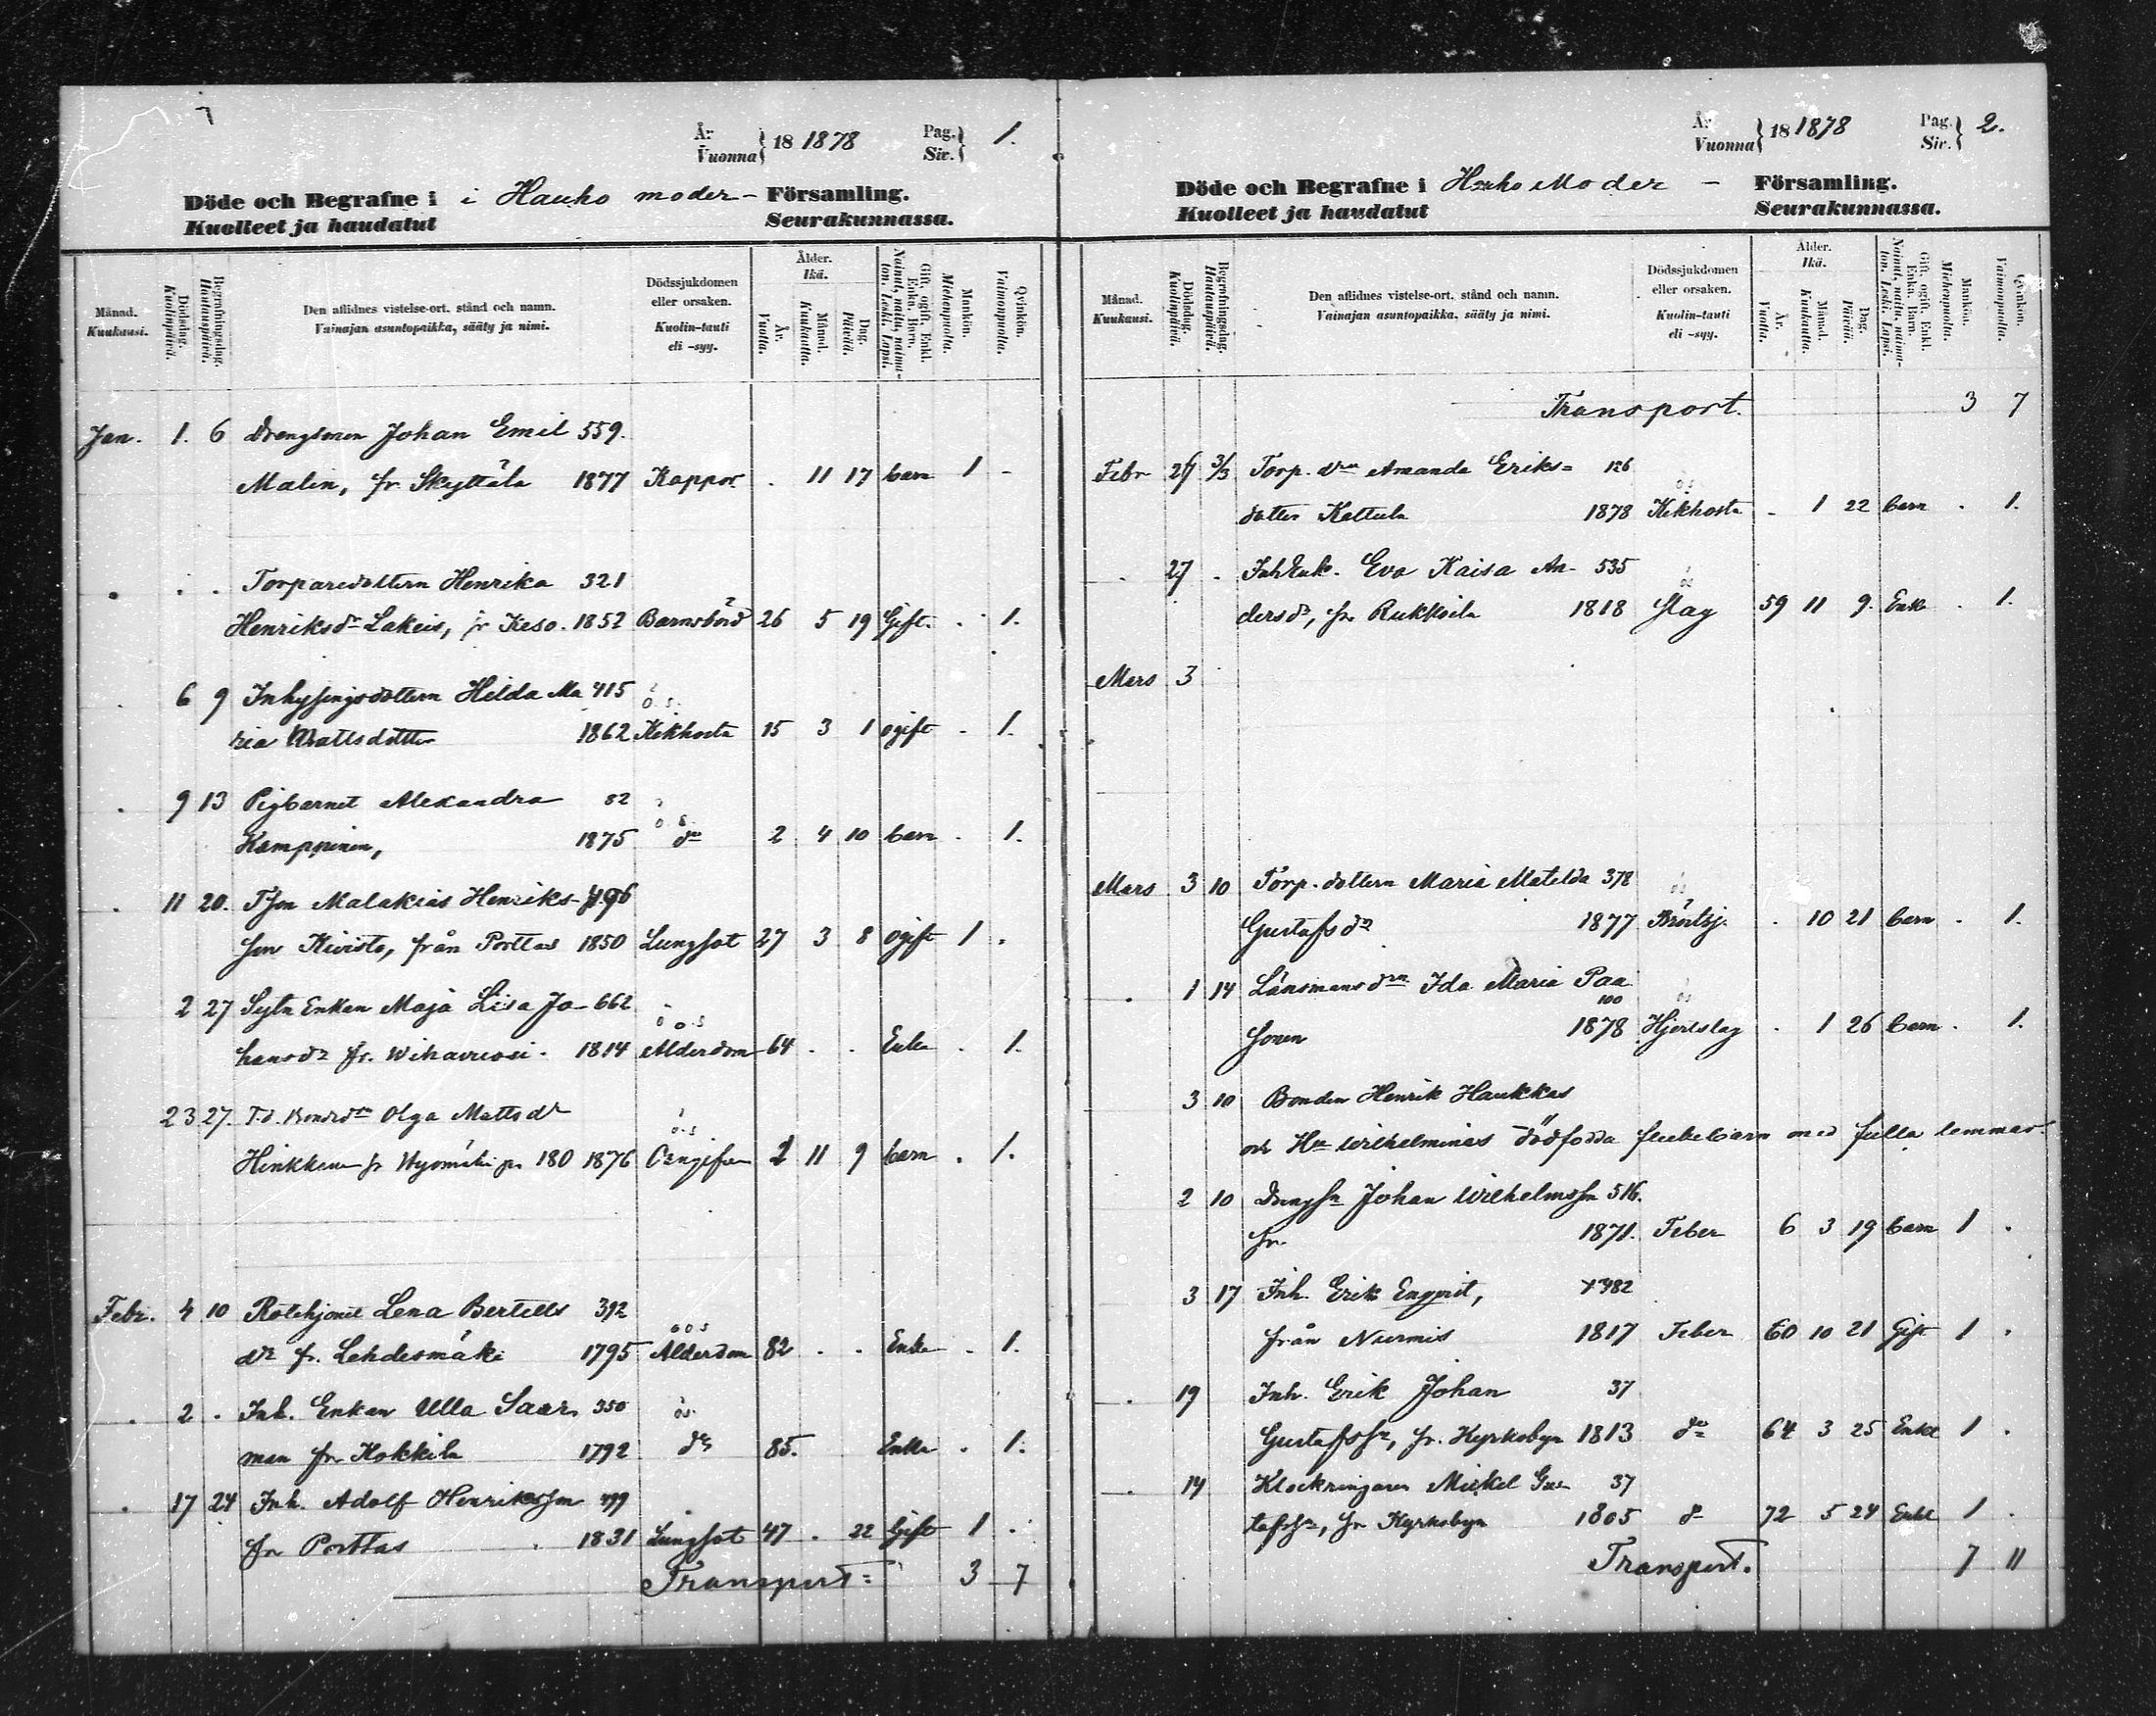 År
Vuonna } 18 1878 Pag. Sir. } 1.
Döde och Begrafne i i Hauho moder- Församling.
Kuolleet ja haudatut Seurakunnassa.
Månad. Kuukausi. Dödsdag. Kuolinpäivä. Begrafningsdag. Hautauspäivä. Den aflidnes vistelse-ort, stånd och namn. Vainajan asuntopaikka, sääty ja nimi. Dödssjukdomen eller orsaken. Kuolin-tauti eli -syy. Ålder. Ikä. År. Vuotta. Månad. Kuukautta. Dag. Päivää. Gift, ogift, Enkl. Enka, Barn. Nainut, naitu, naimaton, Leski, Lapsi. Mankön. Miehenpuolta. Qvinkön. Vaimonpuolta.
Jan. 1. 6 Drengsonen Johan Emil 559.
Malin, fr. Skyttälä 1877 Koppor . 11 17 barn 1 -
. . . Torparedottern Henrika 321
Henriksdr Lakeis, fr Keso. 1852 Barnsbörd 26 5 19 Gift. . 1.
. 6 9 Inhysingsdottern Hilda Ma 415
ria Mattsdotter 1862 Kikhosta 15 3 1 ogift . 1.
. 9 13 Pigbarnet Alexandra 82
Kamppinen, 1875 do 2 4 10 barn . 1.
. 11 20. Tson Malakias Henriks- 496
son Kivisto, från Porttas 1850 Lungsot 27 3 8 ogift 1 .
2 27 Sytn Enkan Maja Lisa Jo- 662
hansdr fr. Wihavuosi. 1814 Alderdom 64 . . Enka . 1.
23 27. T.d. Bondedn Olga Mattsdr
Hinkkanen fr 180 1876 2 11 9 barn . 1.
Febr. 4 10 Rotehjonet Lena Bertills 392
dr fr. Lehdesmäki 1795 Alderdom 82 . . Enka . 1.
. 2 . Inh. Enkan Ulla Saar 350
man fr Kokkila 1792 do 85. Enka . 1.
. 17 24 Inh. Adolf Henriksson 499
fr Porttas 1831 Lungsot 47 . 22 Gift 1 .
Transport= 3 7
År
Vuonna } 18 1878 Pag. Sir. } 2.
Döde och Begrafne i Hauho Moder - Församling.
Kuolleet ja haudatut Seurakunnassa.
Månad. Kuukausi. Dödsdag. Kuolinpäivä. Begrafningsdag. Hautauspäivä. Den aflidnes vistelse-ort, stånd och namn. Vainajan asuntopaikka, sääty ja nimi. Dödssjukdomen eller orsaken. Kuolin-tauti eli -syy. Ålder. Ikä. År. Vuotta. Månad. Kuukautta. Dag. Päivää. Gift, ogift, Enkl. Enka, Barn. Nainut, naitu, naimaton, Leski, Lapsi. Mankön. Miehenpuolta. Qvinkön. Vaimonpuolta.
Transport. 3 7
Febr 3/3 Torp. drn Amanda Eriks= 126
dotter Kattula 1878 Kikhosta . 1 22 barn . 1.
. 27 . Inh Enk. Eva Kaisa An- 535
dersdr, fr. Rukkoila 1818 slag 59 11 9. Enk . 1.
Mars 3
Mars 3 10 Torp. dottern Maria Matilda 378
Gustafsdr 1877 Bröstsj. . 10 21 barn . 1.
. 1 14 Länsmansdrn Ida Maria Paa
100
sonen 1878 Hjertslag . 1 26 barn . 1.
3 10 Bonden Henrik Haukkas
och Hu Wilhelminas dödfödda flickebarn med fulla lemmar.
2 10 Drengsn Johan Wilhelmsson 516.
fr. 1871. Feber 6 3 19 barn 1 .
3 17 Inh. Erik Enqvist, 482
från Nurmis 1817 Feber 60 10 21 Gift 1 .
. 19 Inh. Erik Johan 37
Gustafsn, fr. Kyrkobyn 1813 do 64 3 25 Enkl 1 .
. 14 Klockringaren Mickel Gus 37
tafsn, fr Kyrkobyn 1805 do 72 5 24 Enkl 1 .
Transport. 7 11